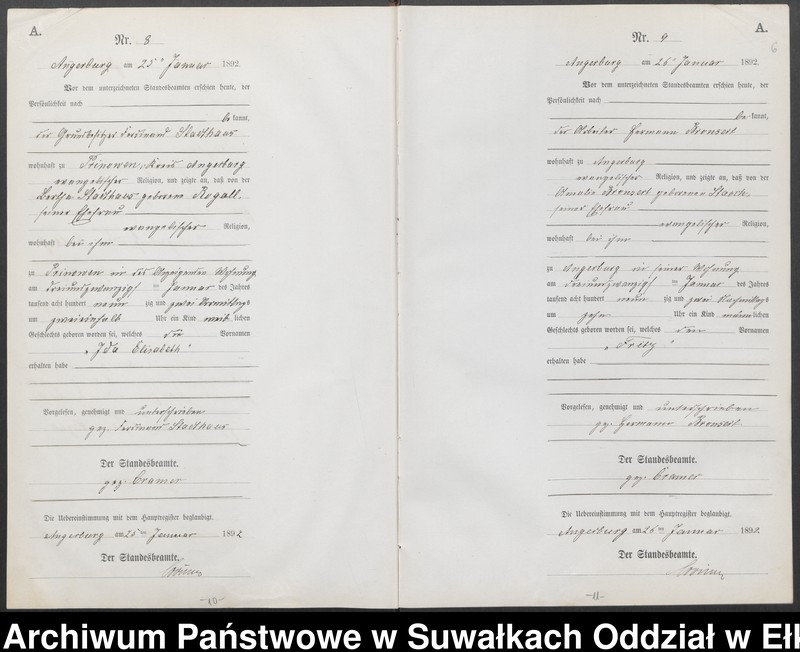 A.
Nr. 8
Angerburg am 25ten Januar 1892
Vor dem unterzeichneten Standesbeamten erschien heute, der
Persönlichkeit nach
be kannt,
der Grundbesitzer Ferdinand Stadthaus
wohnhaft zu Prinowen, Kreis Angerburg
evangelischer Religion, und zeigte an, daß von der
Bertha Stadthaus geborene Rogall,
seiner Ehefrau
evangelischer Religion,
wohnhaft bei ihm
zu Prinowen in des Anzeigenden Wohnung
am dreiundzwanzigsten Januar des Jahres
tausend acht hundert neunzig und zwei Vormittags
um zweieinhalb Uhr ein Kind weiblichen
Geschlechts geboren worden sei, welches die Vornamen
„Ida Elisabeth“
erhalten habe
Vorgelesen, genehmigt und unterschrieben
gez. Ferdinand Stadthaus
Der Standesbeamte.
gez. Cramer
Die Uebereinstimmung mit dem Hauptregister beglaubigt.
Angerburg am 25ten Januar 1892
Der Standesbeamte.
-10-
A.
6
Nr. 9
Angerburg am 26ten Januar 1892
Vor dem unterzeichneten Standesbeamten erschien heute, der
Persönlichkeit nach
be kannt,
der Arbeiter Hermann Bronsert
wohnhaft zu Angerburg
evangelischer Religion, und zeigte an, daß von der
Amalie Bronsert geborenen
seiner Ehefrau
evangelischer Religion,
wohnhaft bei ihm
zu Angerburg in seiner Wohnung
am dreiundzwanzigsten Januar des Jahres
tausend acht hundert neunzig und zwei Nachmittags
um zehn Uhr ein Kind männlichen
Geschlechts geboren worden sei, welches den Vornamen
„Fritz“
erhalten habe
Vorgelesen, genehmigt und unterschrieben
gez. Hermann Bronsert
Der Standesbeamte.
gez. Cramer
Die Uebereinstimmung mit dem Hauptregister beglaubigt.
Angerburg am 26ten Januar 1892
Der Standesbeamte.
-11-
Archiwum Państwowe w Suwałkach Oddział w Ełk